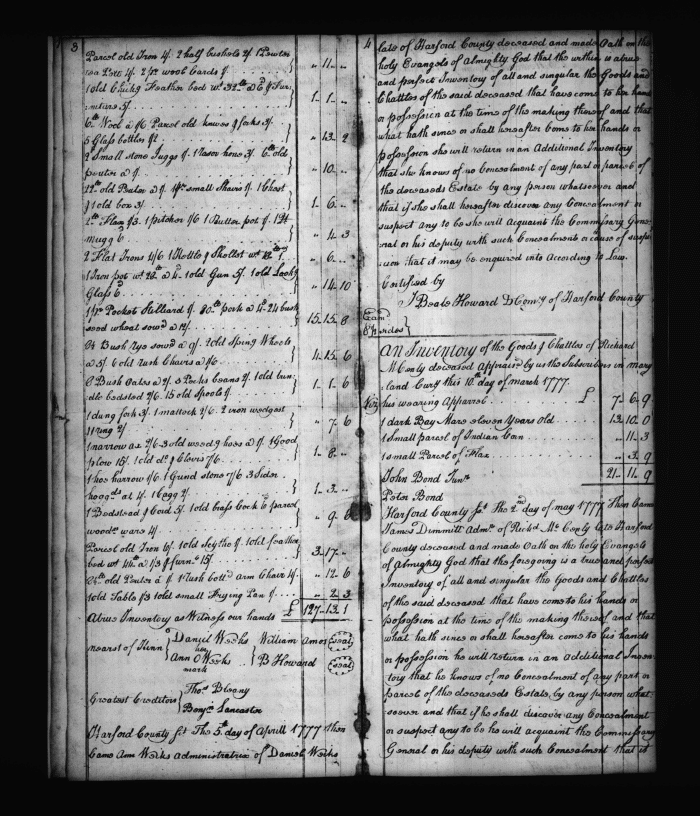 3
Parcel old Iron 4/. 2 half bushels 2/ Pewter
Tea Pott 4/. 2 pr wool Cards /.
" 11 - "
1 old Chicky Feather bed wt 32 lb a 6 & Fur
niture 5/.
1 - 1 - "
6 lb Wool a 1/6 Parcel old knives & forks 3/.
5 Glass bottles
" 13 - 2
2 Small stone Juggs 4/. 1 Rasor hone 3/. 6 lb old
pewter a /.
" 10 - "
12 lb old Pewter a /. small Chairs 4/. 1 Chest
& 1 old box 3/
1 - 6 - "
2 lb Flax 1/3. 1 pitcher 1/6 1 Butter pot /.
mugg 6d
" 4 - 3
2 Flat Irons 4/6 1 Kettle & Skellet wt
" 6 - "
1 Iron pot wt 28 lb a 4d. 1 old Gun 5/. 1 old Lookg
Glass 6d
" 14 - 10
1 pr Pocket Stilliard /. 80 lb pork a 4d 24 bush
seed wheat sow'd a 12/.
15. 15. 8
24 Bush Rye sow'd a /. 2 old Sping Wheels
a 5/. 6 old rush Chairs a 1/6
4. 15. 6
2 Bush Oates a 2/. 3 Pecks beans 2/. 1 old bun
dle bedsted 2/6. 15 old spools /.
1 - 1 - 6
1 dung fork 3/. 1 mattock 2/6. 2 iron wedges
1 ring 2/
" 7. 6
1 narrow ax 2/6 3 old weedg hoes a /. 1 Good
plow 15/. 1 old do & Clevis 7/6
1 - 8 - "
1 hoe harrow 1/6. 1 Grind stone 7/6 3 Sider
hoggds at 4/. 1 Cagg 2/.
1 - 3 - "
1 Bedstead & Cord 5/. 1 old brass Cock 6d parcel
wooden ware 4/.
" 9. 6
Parcel old Iron 6/. 1 old Scythe /. 1 old feather
bed wt 44 lb a 1/3 & furn. 15/.
3. 17. "
24 lb old Pewter a /. 1 Rush bottd arm Chair 4/.
" 12 6
1 old Table 1/3 1 old small Frying Pan /.
" 2 3
A true Inventory as Witness our hands £ 127 - 13. 1
nearest of Kinn { Daniel Weeks
her
Ann O Weeks
mark
William Amos (Seal)
B Howard (Seal)
Greatest Creditors { Thos Bleany
Benjn Lancaster
Harford County sct The 5th day of Aprill 1777 then
Came Ann Weeks administratrix of Daniel Weeks
4
late of Harford County deceased and made Oath on the
holy Evangels of Almighty God that the within is a true
and perfect Inventory of all and singular the Goods and
Chattles of the said deceased that have come to her hands
or possession at the time of the making thereof and that
what hath since or shall hereafter come to her hands or
possession she will return in an Additional Inventory
that she knows of no concealment of any part or parcel of
the deceaseds Estate by any person whatsoever and
that if she shall hereafter discover any Concealment or
suspect any to be she will Acquaint the Commissary Gene-
-ral or his deputy with such Concealment or cause of suspi
cion that it may be enquired into According to Law.
Certified by
J Beale Howard D Comy of Harford County
Examd
An Inventory of the Goods & Chattles of Richard
McCenty deceased Appraised by us the Subscribers in mary
land Curcy this 10th day of march 1777.
Viz his wearing Apparrel £ 7 - 6 - 9
1 dark Bay Mare eleven Years old 13 - 10 - 0
1 Small parcel of Indian Corn " 11 - 3
1 small Parcel of Flax " 3. 9
John Bond Junr
21 - 11 - 9
Peter Bond
Harford County sct The 2nd day of may 1777 Then Came
James Dimmitt Admr of Richd McCenty late Harford
County deceased and made Oath on the holy Evangels
of Almighty God that the foregoing is a true and perfect
Inventory of all and singular the Goods and Chattles
of the said deceased that have come to his hands or
possession at the time of the making thereof and that
what hath since or shall hereafter come to his hands
or possession he will return in an Additional Inven-
tory that he knows of no Concealment of any part or
parcel of the deceaseds Estate, by any person what-
soever and that if he shall discover any Concealment
or suspect any to be he will acquaint the Commissary
General or his deputy with such Concealment that it